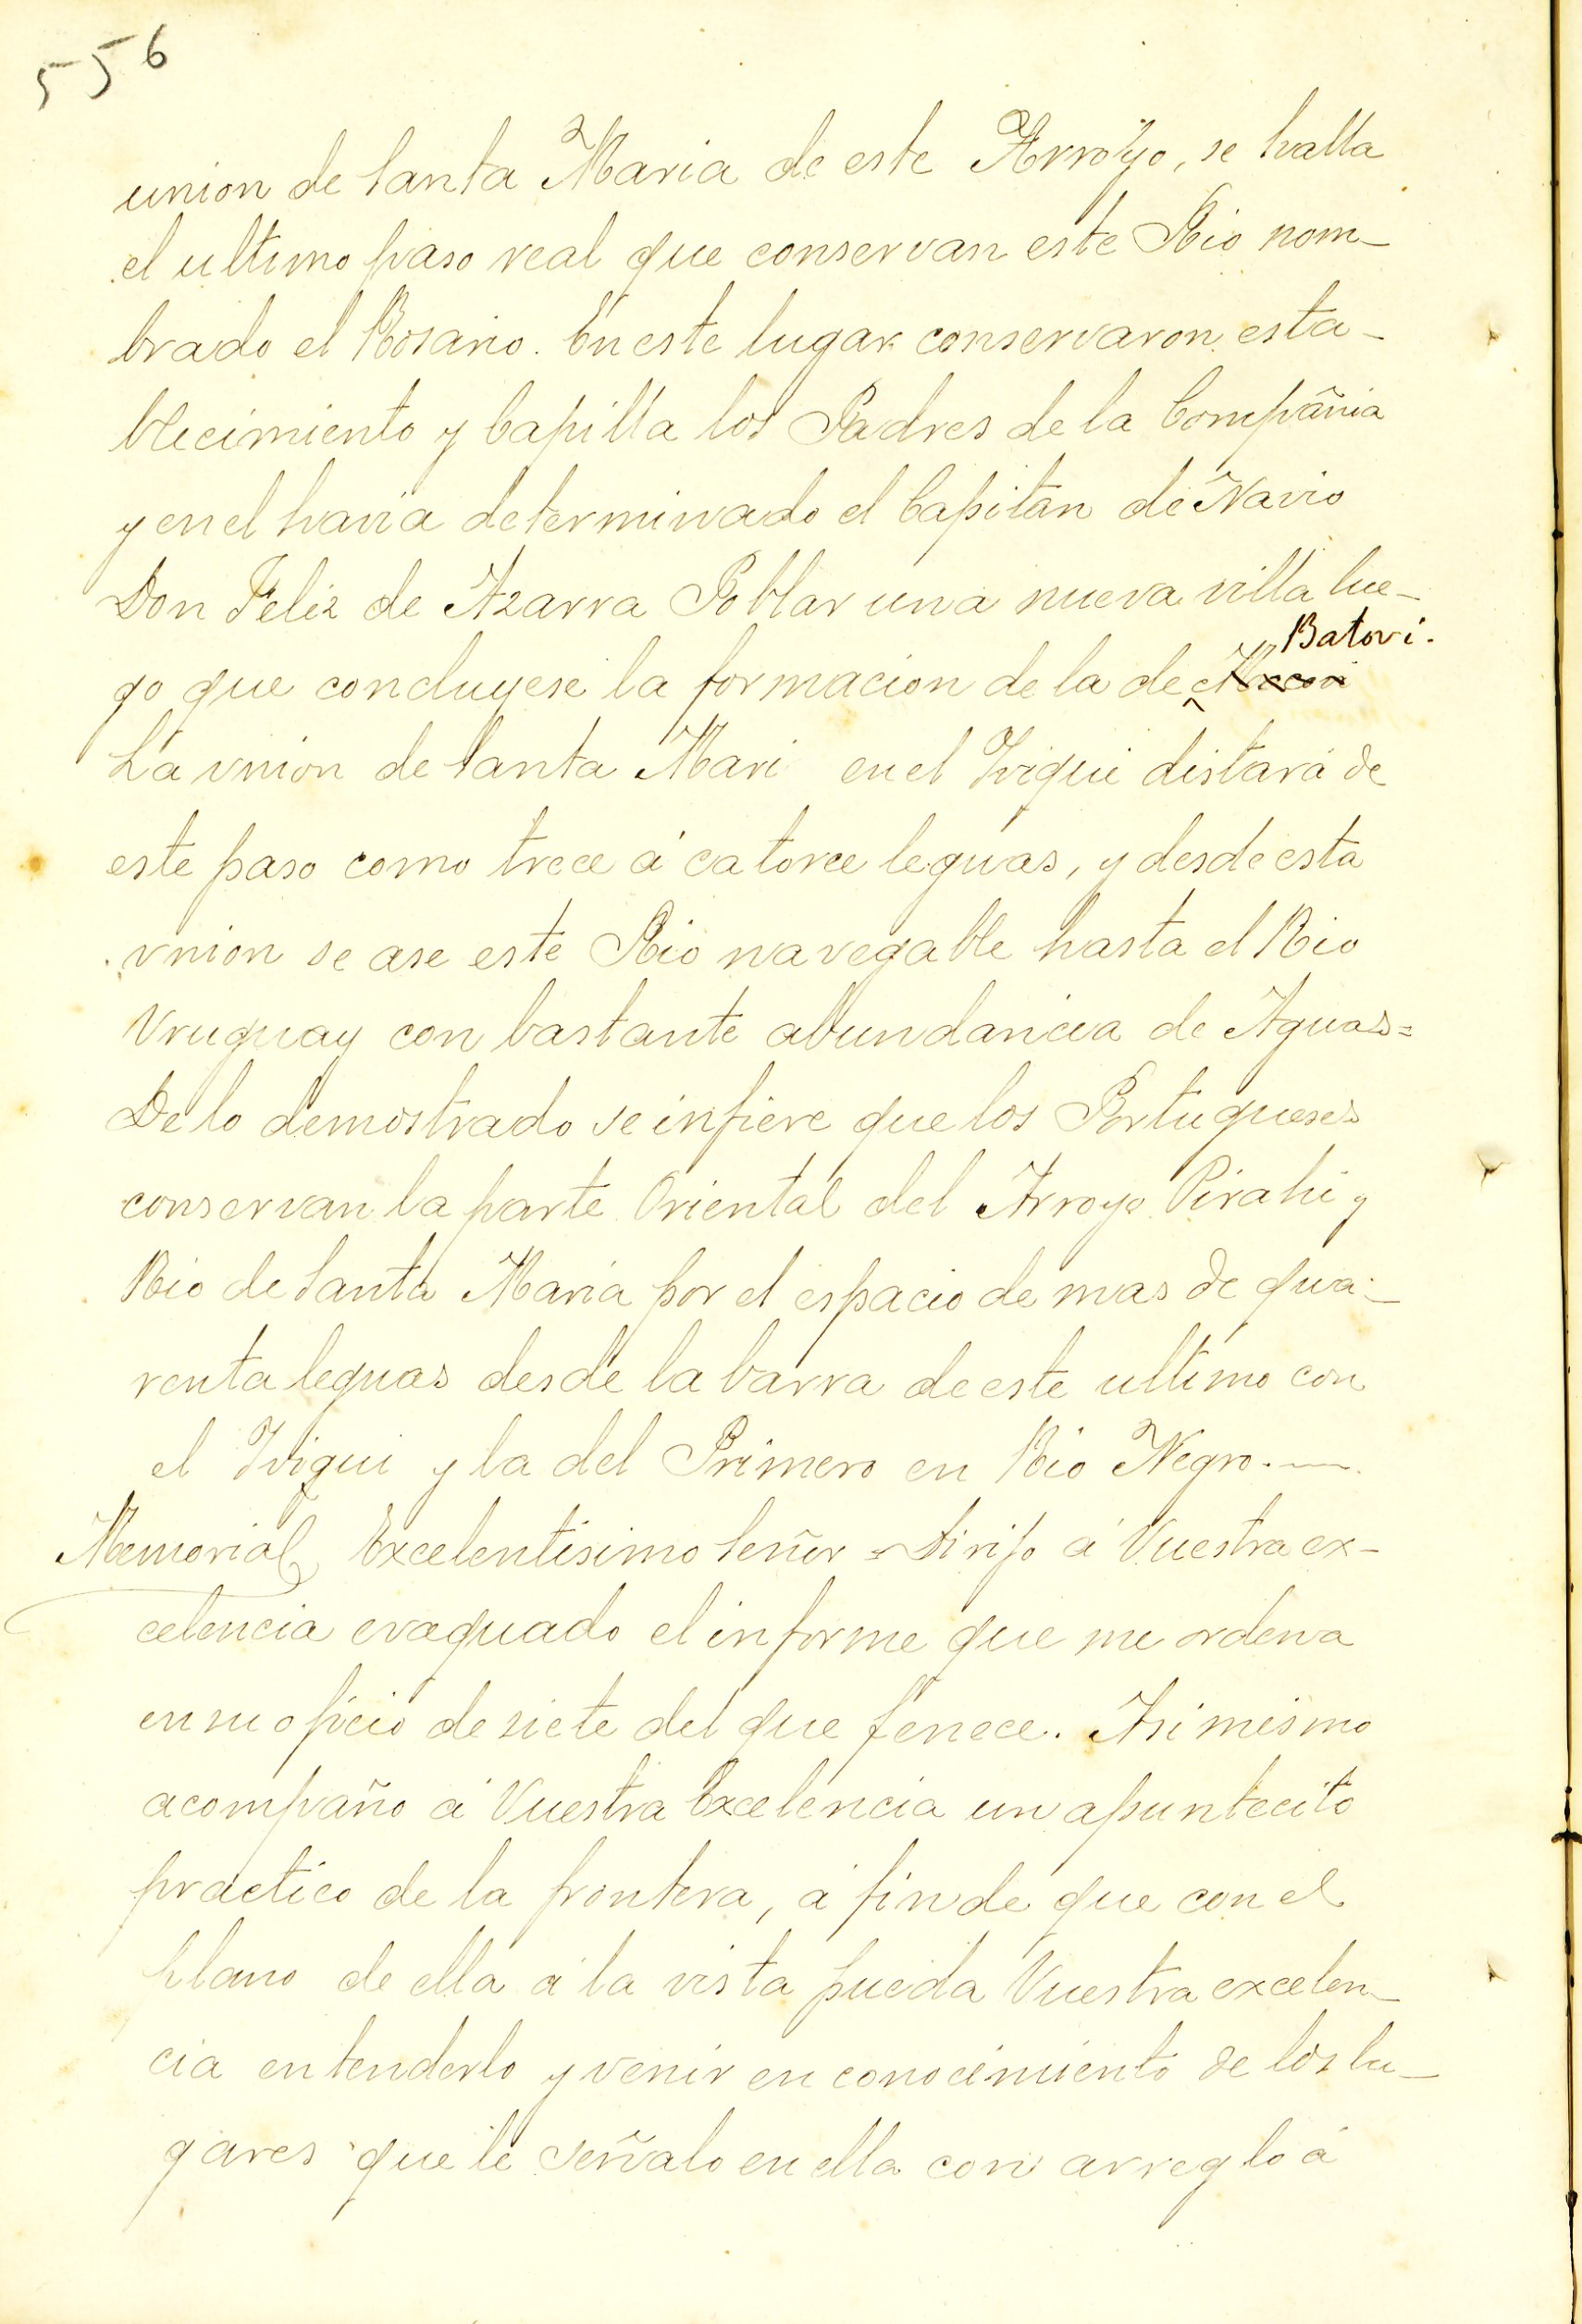 556
union de santa Maria de este Arroyo, se halla
el ultimo paso real que conservan este Rio nom-
brado el Rosario. En este lugar conservaron esta-
blecimiento y Capilla los Padres de la Compañia
y en el havia determinado el Capitan de Navio
Don Feliz de Azarra Poblar una nueva villa lue-
Batovi.
go que concluyese la formacion de la de
La vnion de santa Mari en el Yviqui distará de
este paso como trece á catorce leguas, y desde esta
vnion se ase este Rio navegable hasta el Rio
Vruguay con bastante abundancia de Aguas=
De lo demostrado se infiere que los Portugueses
conservan la parte Oriental del Arroyo Pirahi y
Rio de Santa Maria por el espacio de mas de qua-
renta leguas desde la barra de este ultimo con
el Yviqui y la del Primero en Rio Negro.—
Memorial Excelentisimo señor = Dirijo á Vuestra ex-
celencia evaquado el informe que me ordena
en su oficio de siete del que fenece. Asi mismo
acompaño á Vuestra Excelencia un apuntecito
practico de la frontera, á fin de que con el
plano de ella á la vista pueda Vuestra excelen-
cia entenderlo y venir en conocimiento de los lu-
gares que le señalo en ella con arreglo á